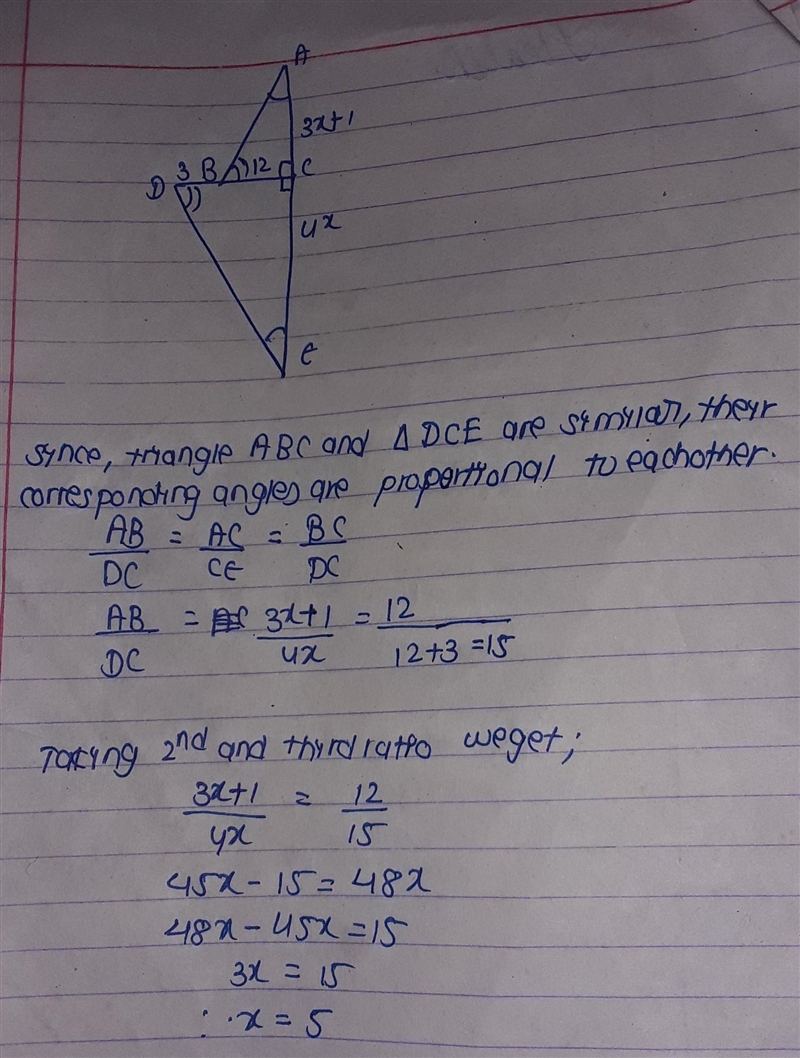 A
3x+1
D 3 B 12 C
4x
E
Since, triangle ABC and Δ DCE are similar, their
corresponding angles are propertional to eachother.
AB/DC = AC/CE = BC/DC
AB/DC = 3x+1/4x = 12/12+3=15
Taking 2nd and third ratio weget;
3x+1/4x = 12/15
45x - 15 = 48x
48x - 45x = 15
3x = 15
∴ x = 5